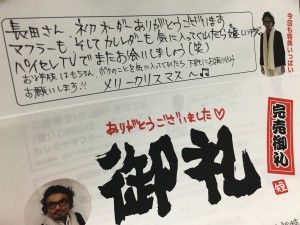 長田さん、初オーダーありがとうございます
マフラーも そしてカレンダーも 気に入ってもらえたら嬉しいです
ベイセレTVでまたお会いしましょう(笑)
お守り版はもちろん、ボクのことを気に入って下さい
お願いします!! メリークリスマス〜♫
今回も特典いっぱい
ありがとうございました♡
完売御礼
御礼